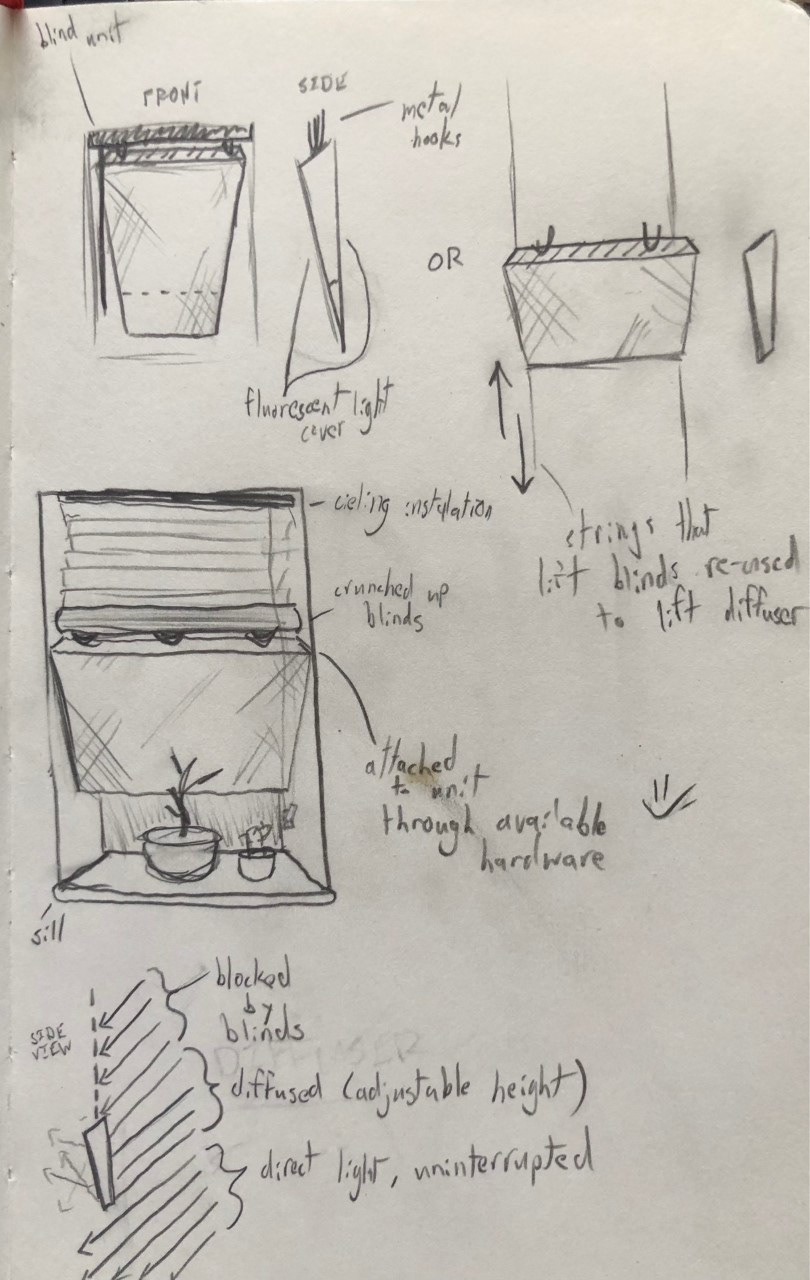 blind unit
FRONT
SIDE
metal
hooks
OR
fluorescent light
cover
strings that
lift blinds re-used
to lift diffuser
cieling instylation
crunched up
blinds
attached
to unit
through available
hardware
sill
SIDE
VIEW
blocked
by
blinds
DIFFUSER
diffused (adjustable height)
direct light, uninterrupted